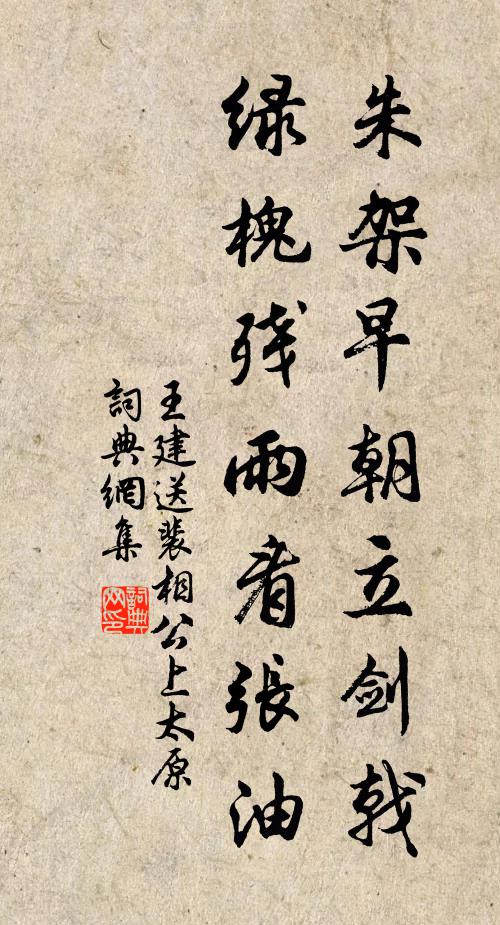 朱架早朝立剑戟
绿槐残雨看張油
王建送裴相公上太原
詞典網集
詞典网印